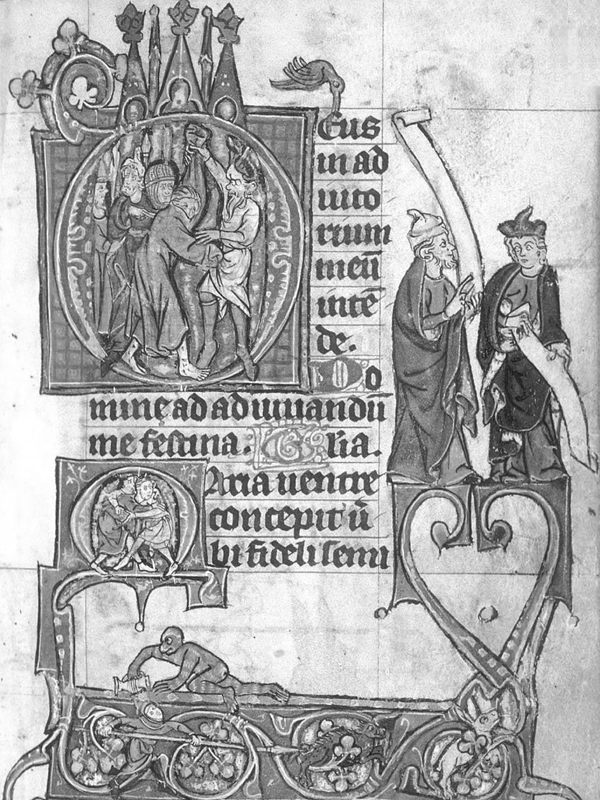 Eus
in ad
iuto
rium
meū
intē
de. Do
mine ad adiuuandū
me festina. Gl̄ia.
Aria uentre
concepit ū
bi fideli semi